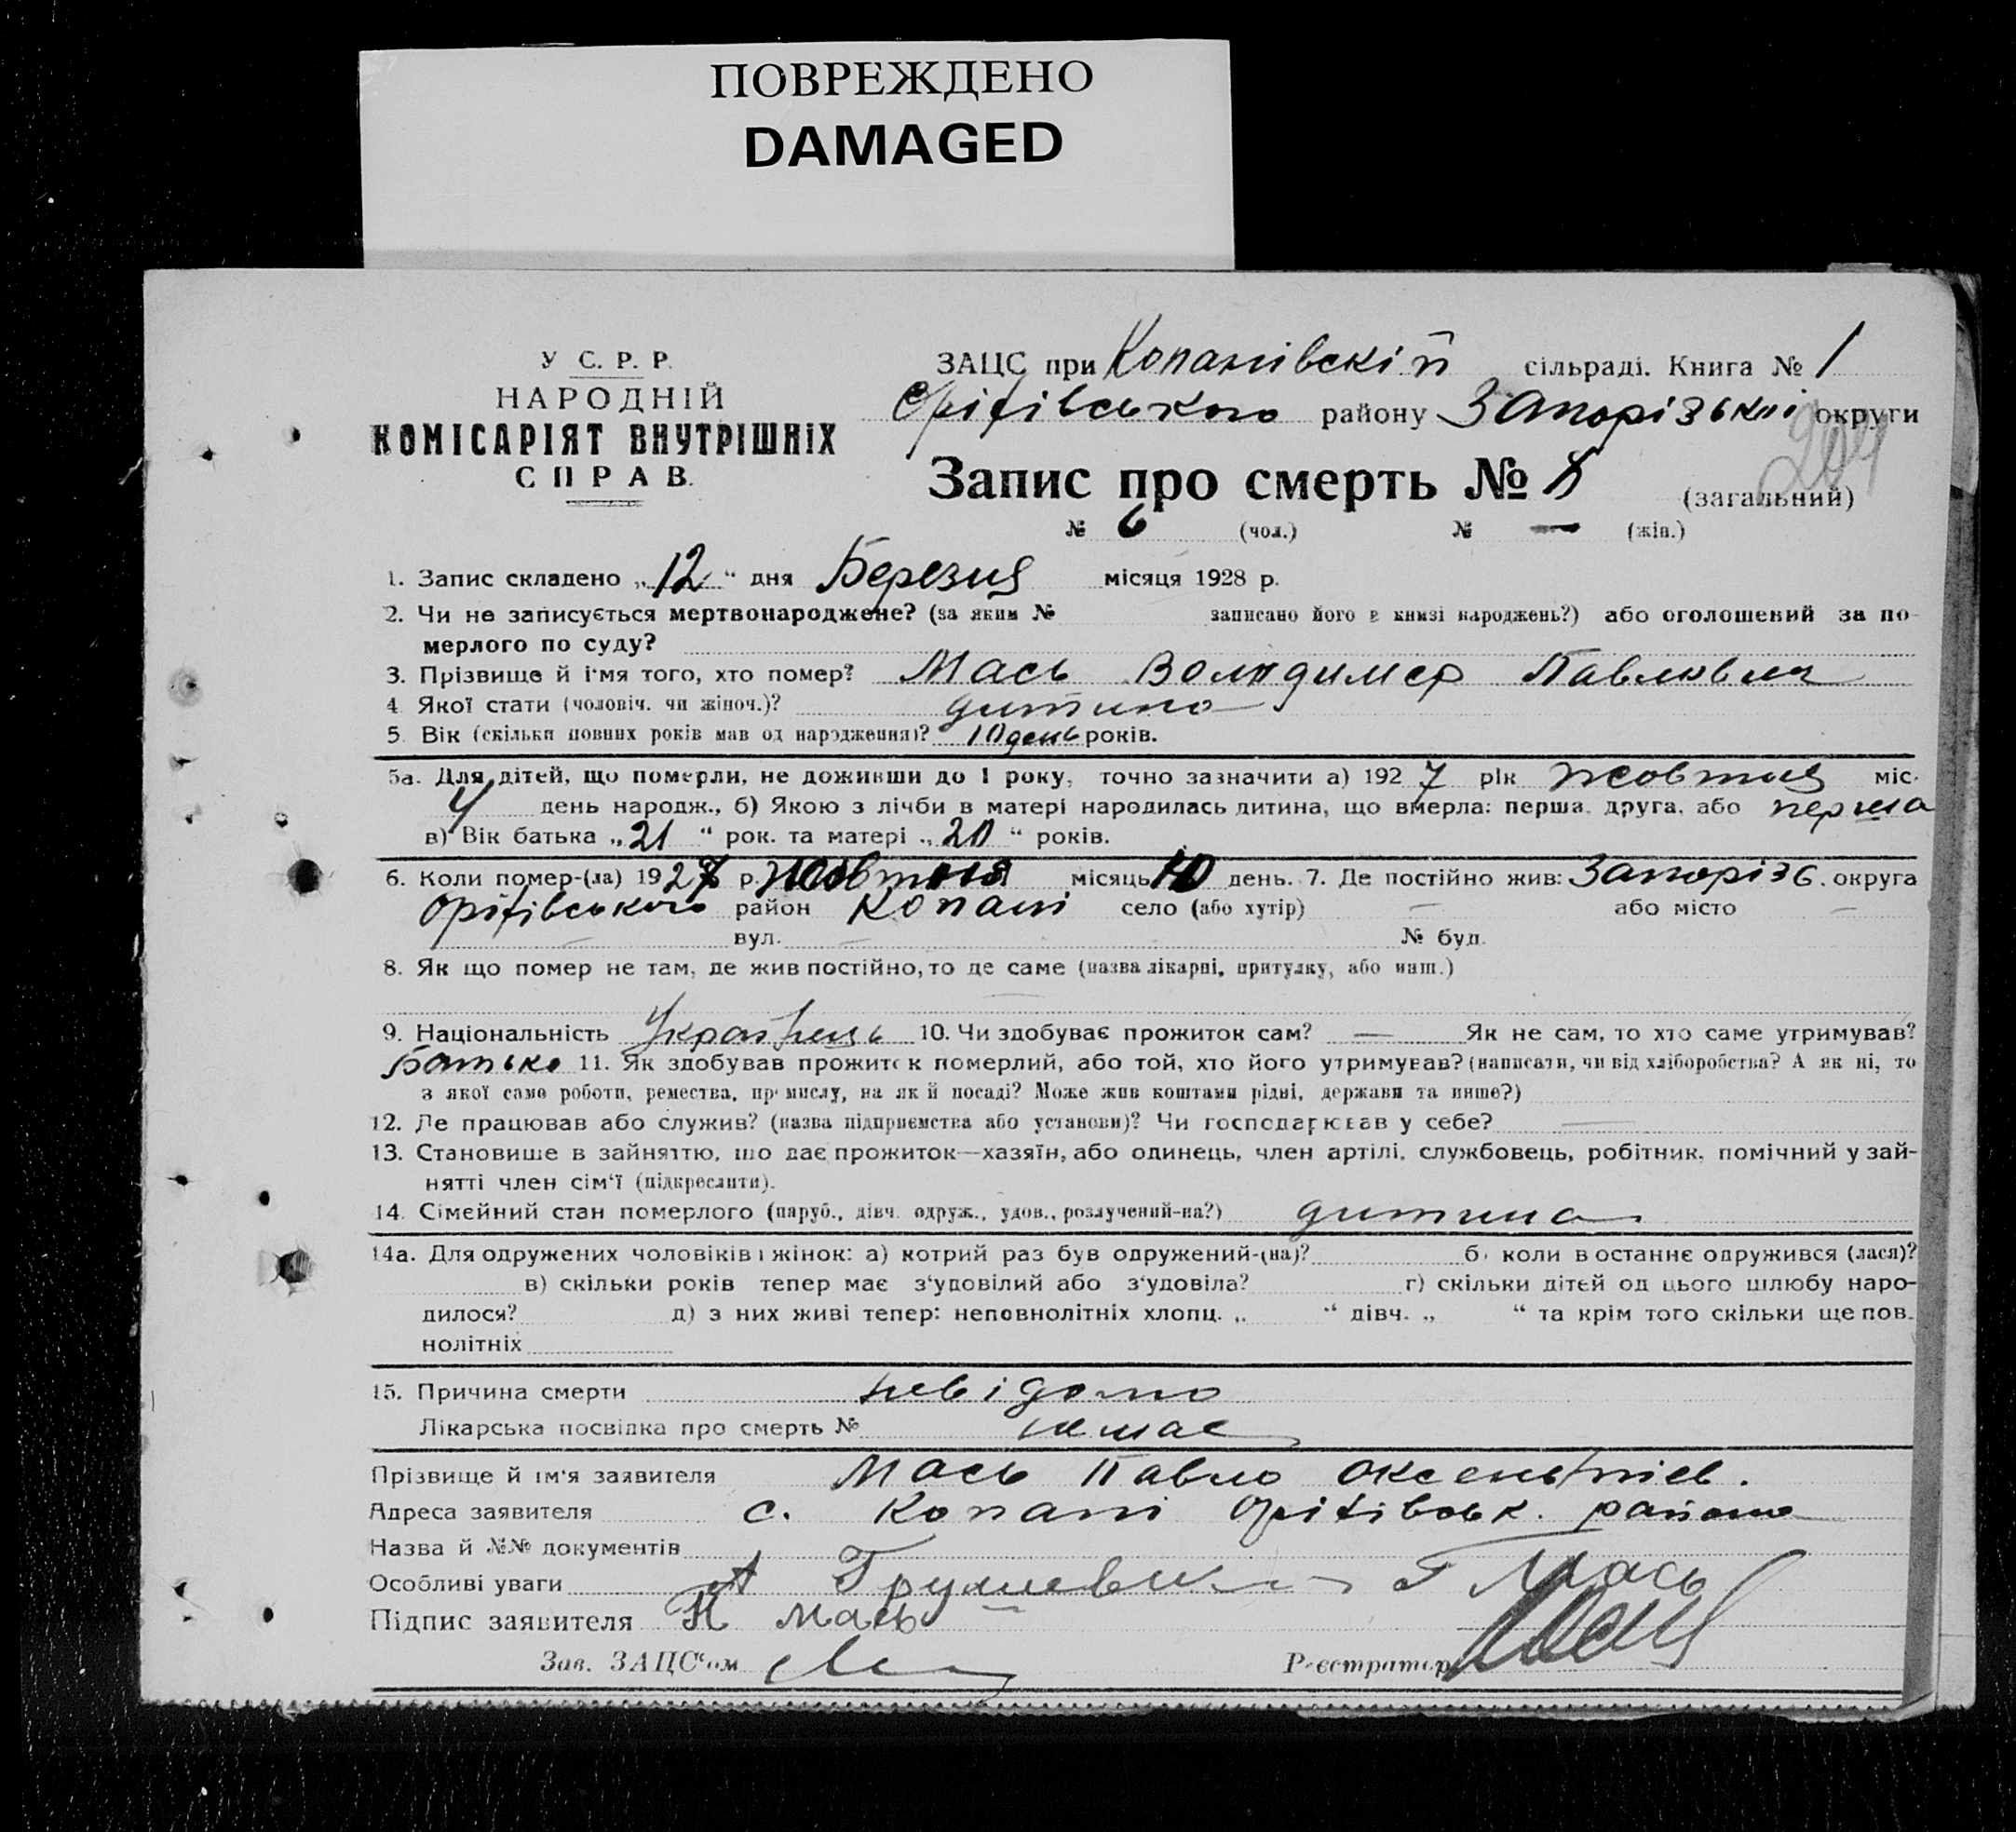 ПОВРЕЖДЕНО
DAMAGED
У С. Р. Р.
НАРОДНІЙ
КОМІСАРІЯТ ВНУТРІШНІХ
СПРАВ.
ЗАЦС при Копанівскій сільраді. Книга № 1
Оріхівського району Запорізької округи
204
Запис про смерть № (загальний)
№ 6 (чол.) № — (жін.)
1. Запис складено „12“ дня Березня місяця 1928 р.
2. Чи не записується мертвонароджене? (за яким № записано його в книзі народжень?) або оголошений за по-
мерлого по суду?
3. Прізвище й ім'я того, хто помер? Мась Володимер Павлович
4. Якої стати (чоловіч. чи жіноч.)? дитина
5. Вік (скільки повних років мав од народження)? 10 день років.
5а. Для дітей, що померли, не доживши до 1 року, точно зазначити а) 1927 рік жовтня міс.
день народж., б) Якою з лічби в матері народилась дитина, що вмерла: перша, друга, або перша
в) Вік батька „21“ рок. та матері „20“ років.
6. Коли помер-(ла) 1927 р. жовтня місяць 10 день. 7. Де постійно жив: Запоріз. округа
Оріхівського район Копані село (або хутір) — або місто —
— вул. — № буд.
8. Як що помер не там, де жив постійно, то де саме (назва лікарні, притулку, або инш.)
—
9. Національність Українець 10. Чи здобуває прожиток сам? — Як не сам, то хто саме утримував?
Батько 11. Як здобував прожиток померлий, або той, хто його утримував? (написати, чи від хліборобства? А як ні, то
з якої саме роботи, ремества, промислу, на якій посаді? Може жив коштами рідні, держави та инше?)
12. Де працював або служив? (назва підприємства або установи)? Чи господарював у себе? —
13. Становище в зайняттю, що дає прожиток—хазяїн, або одинець, член артілі, службовець, робітник, помічний у зай-
нятті член сім'ї (підкреслити).
14. Сімейний стан померлого (паруб., дівч. одруж., удов., розлучений-на?) дитина
14а. Для одружених чоловіків і жінок: а) котрий раз був одружений-(на)? б) коли востаннє одружився (лася)?
в) скільки років тепер має з'удовілий або з'удовіла? г) скільки дітей од цього шлюбу наро-
дилося? д) з них живі тепер: неповнолітніх хлопц. „ “ дівч. „ “ та крім того скільки ще пов-
нолітніх
15. Причина смерти невідомо
Лікарська посвідка про смерть № немає
Прізвище й ім'я заявителя Мась Павло
Адреса заявителя с. Копані Оріхівськ. району
Назва й №№ документів
Особливі уваги Мась
Підпис заявителя П Мась
Зав. ЗАЦС'ом
Реєстратор